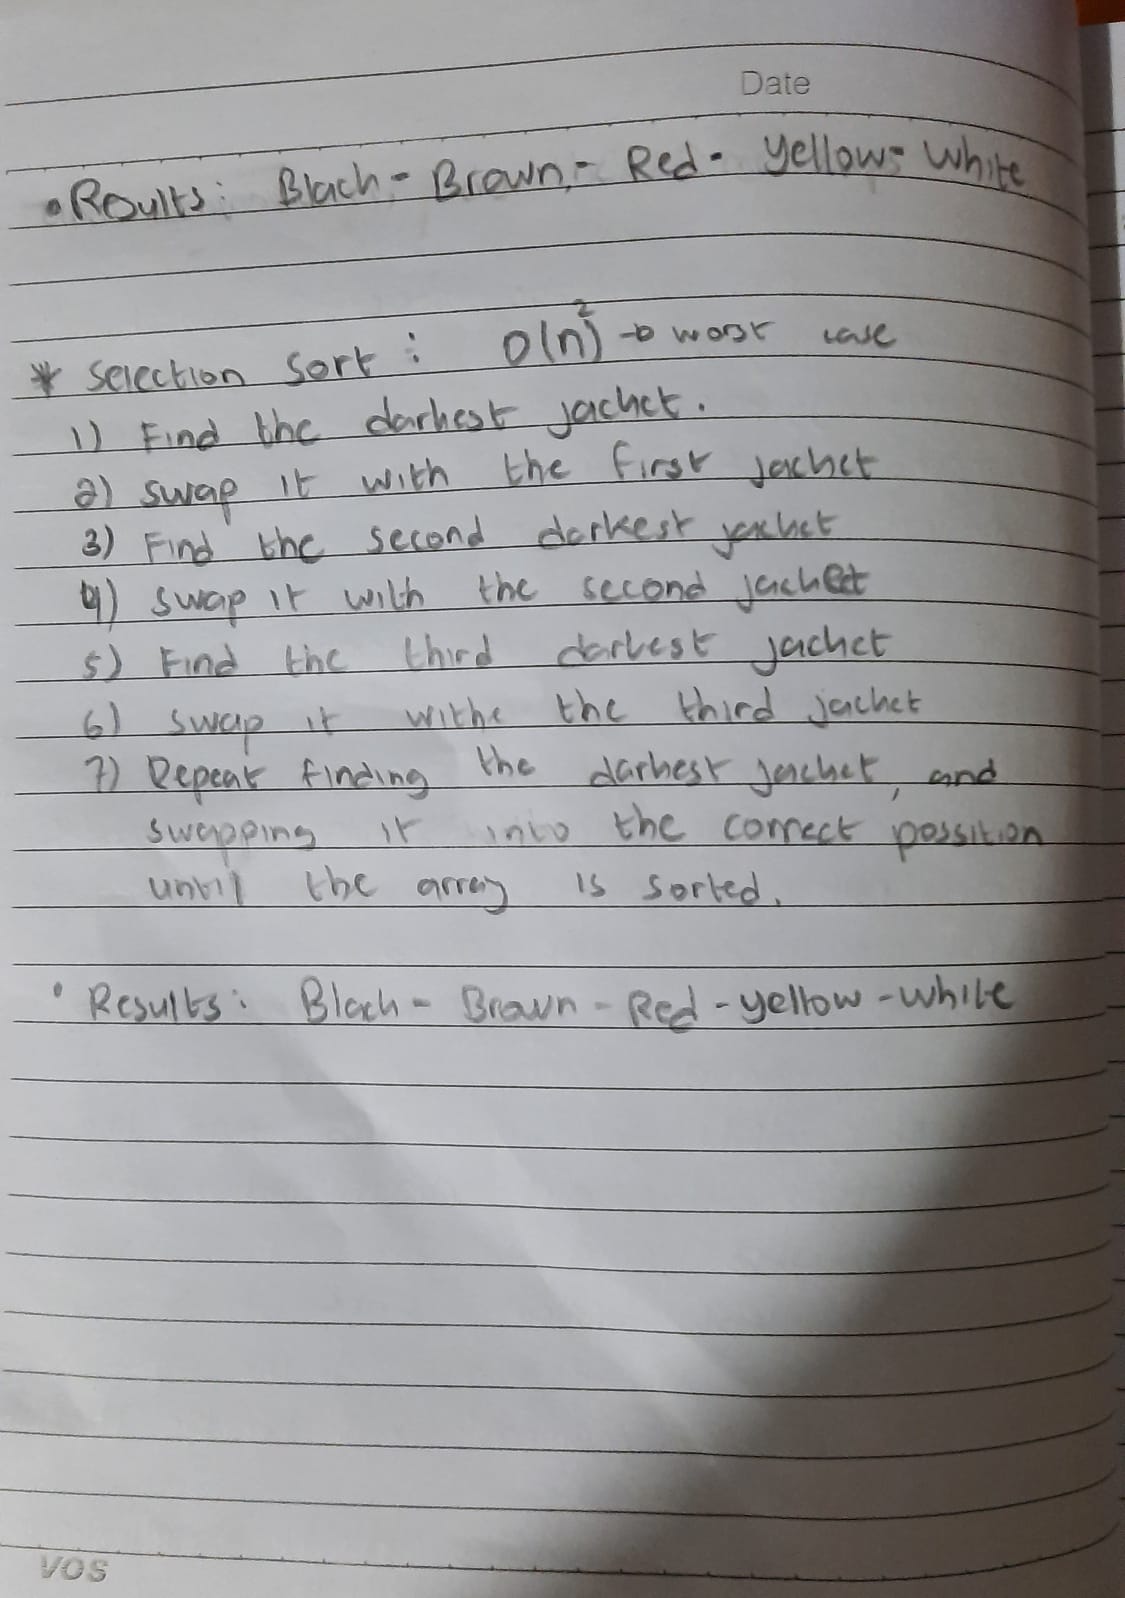 Date
• Results: Black - Brown - Red - yellow - white
* Selection Sort : O(n²) → worst case
1) Find the darkest jacket.
2) swap it with the first jacket
3) Find the second darkest jacket
4) swap it with the second jacket
5) Find the third darkest jacket
6) swap it withe the third jacket
7) Repeat finding the darkest jacket, and
swapping it into the correct possition
until the array is sorted.
• Results: Black - Brown - Red - yellow - white
VOS